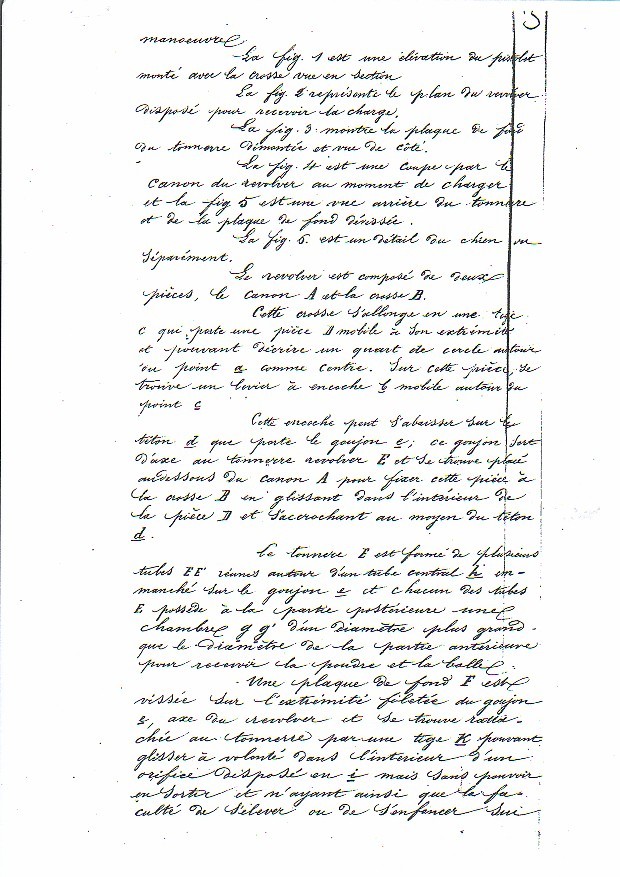 manoeuvre
La fig. 1 est une élévation du pistolet
monté avec la crosse vue en section
La fig. 2 représente le plan du revolver
disposé pour recevoir la charge.
La fig. 3 montre la plaque de fond
du tonnerre démontée et vue de côté.
La fig. 4 est une coupe par le
canon du revolver au moment de charger
et la fig 5 est une vue arrière du tonnerre
et de la plaque de fond dévissée.
La fig. 6. est un détail du chien vu
séparément.
Le revolver est composé de deux
pièces, le canon A et la crosse B.
Cette crosse s'allonge en une tige
C qui porte une pièce D mobile à son extrémité
et pouvant décrire un quart de cercle autour
du point a comme centre. Sur cette pièce, se
trouve un levier à encoche b mobile autour du
point c
Cette encoche peut s'abaisser sur le
téton d que porte le goujon e; ce goujon sert
d'axe au tonnerre revolver E et se trouve placé
au dessous du canon A pour fixer cette pièce à
la crosse B en glissant dans l'intérieur de
la pièce D et s'accrochant au moyen du téton
d.
Le tonnerre E est formé de plusieurs
tubes EE' réunis autour d'un tube central h em-
manché sur le goujon e et chacun des tubes
E possède à la partie postérieure une
chambre g g' d'un diamètre plus grand
que le diamètre de la partie antérieure
pour recevoir la poudre et la balle.
Une plaque de fond F est
vissée sur l'extrémité filetée du goujon
e, axe du revolver et se trouve ratta-
chée au tonnerre par une tige K pouvant
glisser à volonté dans l'intérieur d'un
orifice disposé en i mais sans pouvoir
en sortir et n'ayant ainsi que la fa-
culté de s'élever ou de s'enfoncer sui